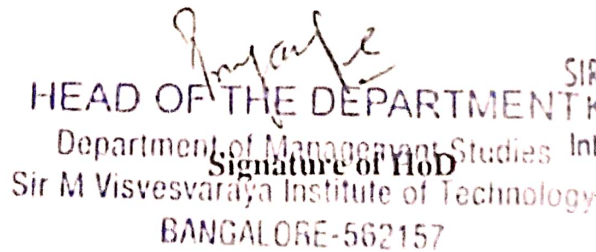 SIR
HEAD OF THE DEPARTMENT K
Department of Management Studies Int
Signature of HoD
Sir M Visvesvaraya Institute of Technology
BANGALORE-562157